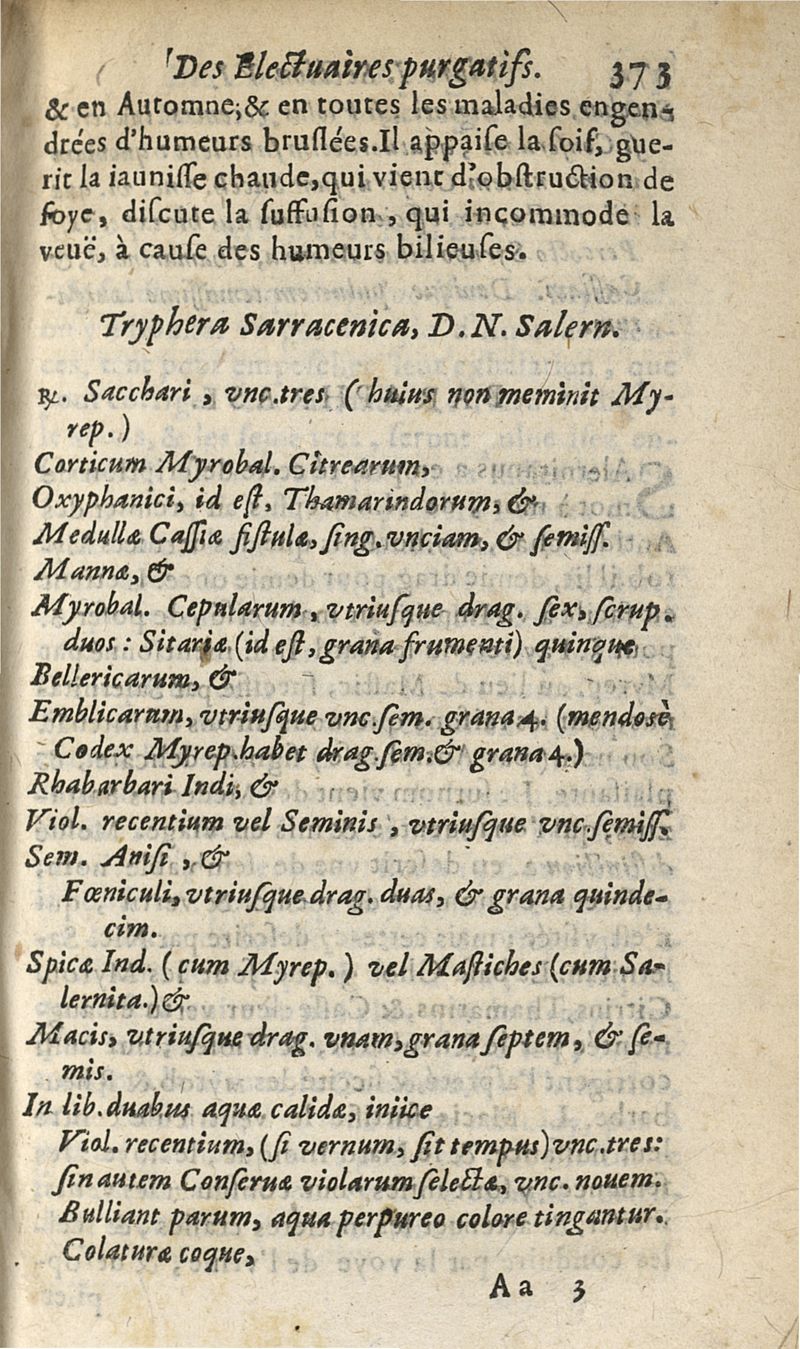 Des Electuaires purgatifs. 373
& en Automne, & en toutes les maladies engen-
drées d'humeurs bruſlées. Il appaiſe la ſoif, gue-
rit la iauniſſe chaude, qui vient d'obſtruction de
foye, diſcute la ſuffuſion, qui incommode la
veuë, à cauſe des humeurs bilieuſes.
Tryphera Sarracenica, D. N. Salern.
℞. Sacchari, vnc. tres (huius non meminit My-
rep.)
Corticum Myrobal. Citrearum,
Oxyphanici, id eſt, Thamarindorum, &
Medullæ Caſſiæ fiſtulæ, ſing. vnciam, & ſemiſſ.
Mannæ, &
Myrobal. Cepularum, vtriuſque drag. ſex, ſcrup.
duos: Sitariæ (id eſt, grana frumenti) quinque
Bellericarum, &
Emblicarum, vtriuſque vnc. ſem. grana 4. (mendosè
Codex Myrep. habet drag. ſem. & grana 4.)
Rhabarbari Indi, &
Viol. recentium vel Seminis, vtriuſque vnc. ſemiſſ.
Sem. Aniſi, &
Fœniculi, vtriuſque drag. duas, & grana quinde-
cim.
Spicæ Ind. (cum Myrep.) vel Maſtiches (cum Sa-
lernita.) &
Macis, vtriuſque drag. vnam, grana ſeptem, & ſe-
mis.
In lib. duabus aquæ calidæ, iniice
Viol. recentium, (ſi vernum, ſit tempus) vnc. tres:
ſin autem Conſeruæ violarum ſelectæ, vnc. nouem.
Bulliant parum, aqua perpureo colore tingantur.
Colaturæ coque,
Aa 3